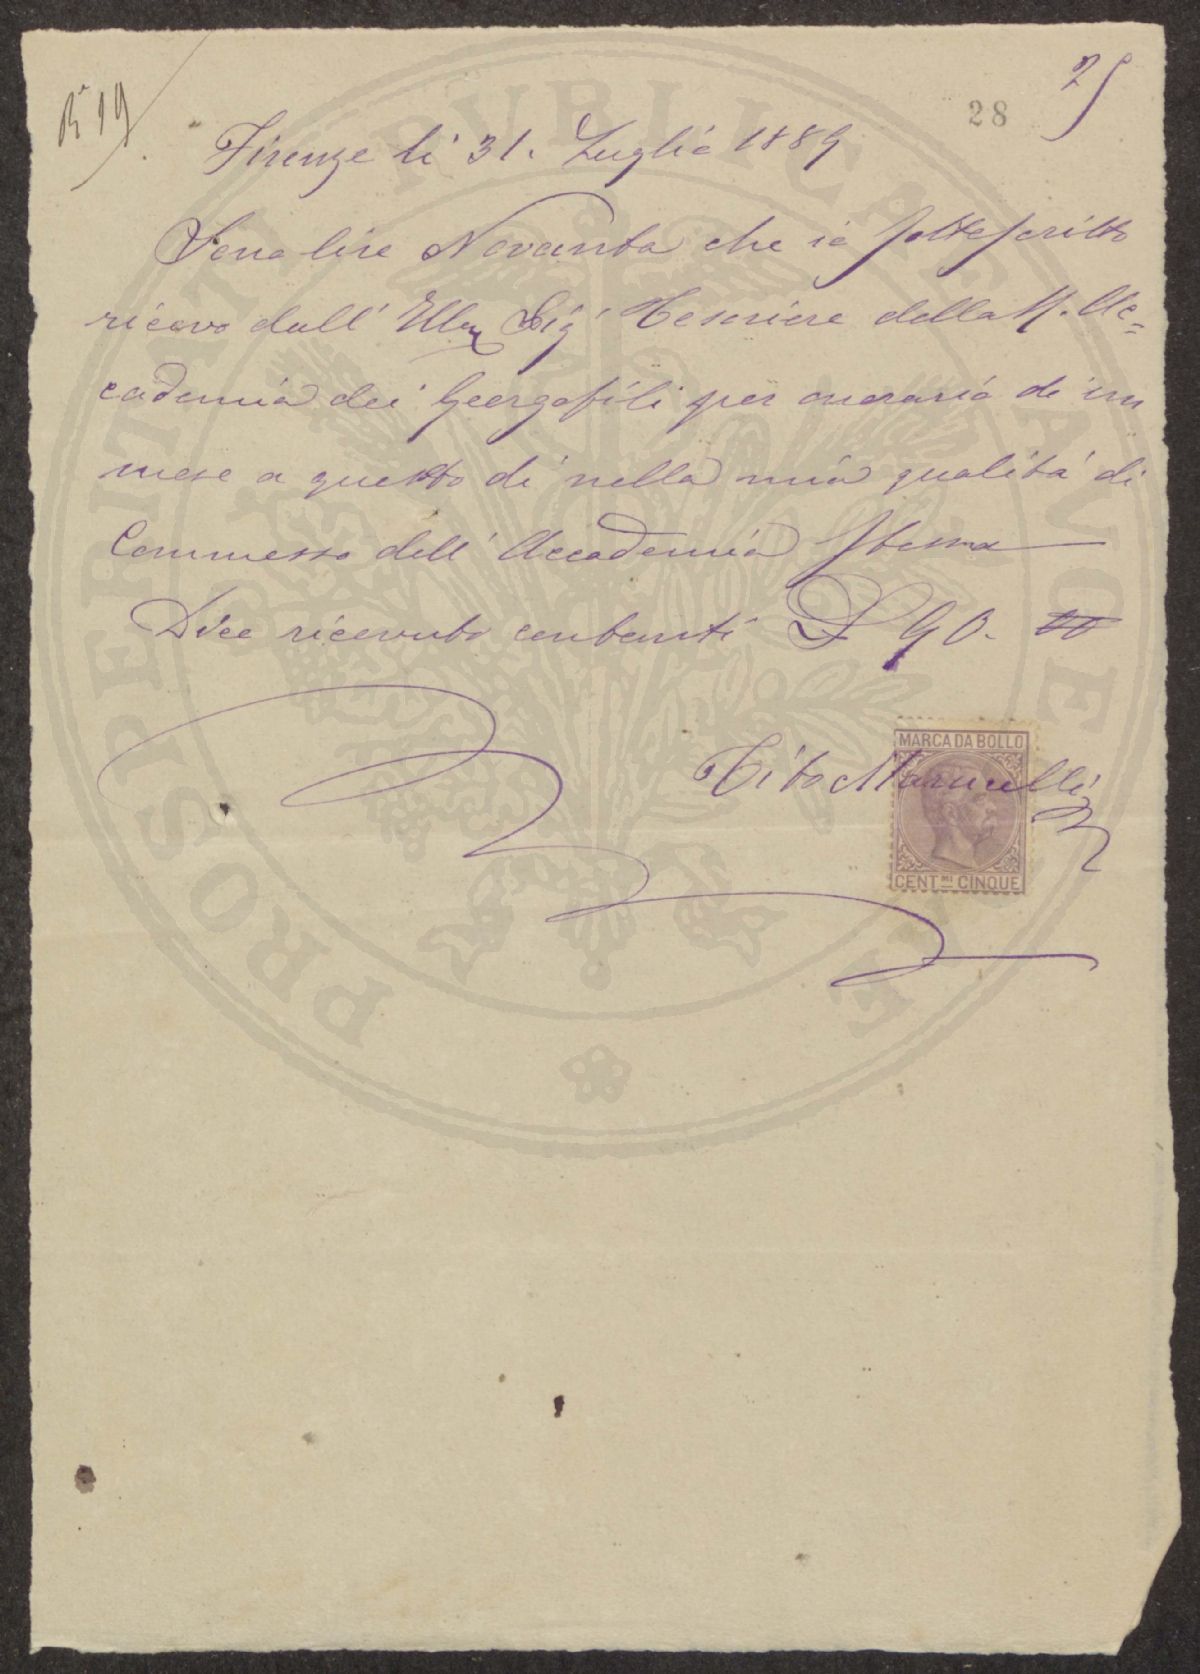 Rº 19
25
28
Firenze li 31. Luglio 1889
Sono lire Novanta che io sottoscritto
ricevo dall' Illmo Sigr Tesoriere della R. Ac=
cademia dei Georgofili per onorario di un
mese a questo dì nella mia qualità di
Commesso dell' Accademia Stessa
Dico ricevuto contanti £ 90.
Tito Marucelli
MARCA DA BOLLO
CENT.MI CINQUE
PROSPERITATI PVBLICAE AVGENDAE